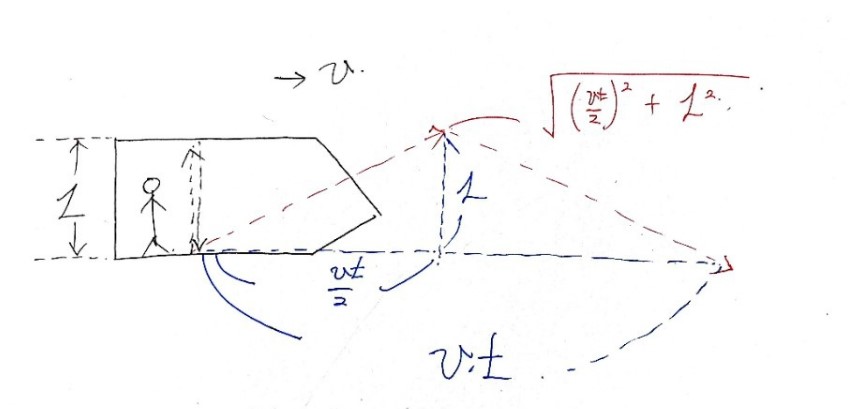 → v.
√((vt/2)² + L²)
L
L
vt/2
v·t